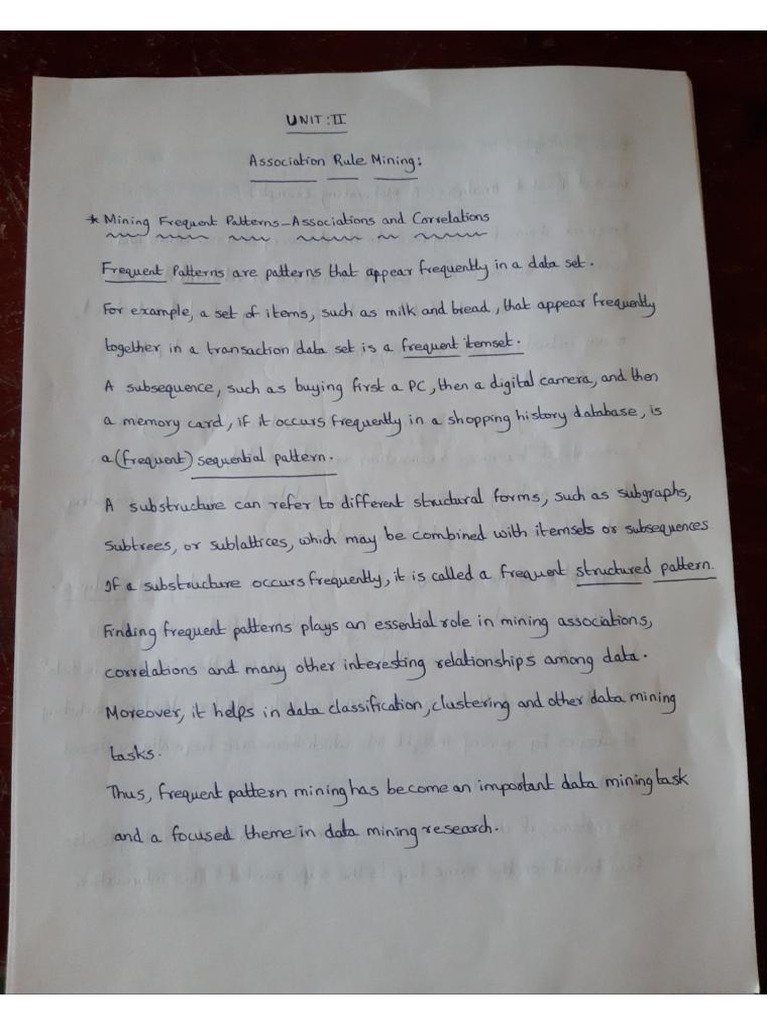 UNIT:II
Association Rule Mining:
* Mining Frequent Patterns-Associations and Correlations
Frequent Patterns are patterns that appear frequently in a data set.
For example, a set of items, such as milk and bread, that appear frequently
together in a transaction data set is a frequent itemset.
A subsequence, such as buying first a PC, then a digital camera, and then
a memory card, if it occurs frequently in a shopping history database, is
a (frequent) sequential pattern.
A substructure can refer to different structural forms, such as subgraphs,
subtrees, or sublattices, which may be combined with itemsets or subsequences
If a substructure occurs frequently, it is called a frequent structured pattern.
Finding frequent patterns plays an essential role in mining associations,
correlations and many other interesting relationships among data.
Moreover, it helps in data classification, clustering and other data mining
tasks.
Thus, frequent pattern mining has become an important data mining task
and a focused theme in data mining research.